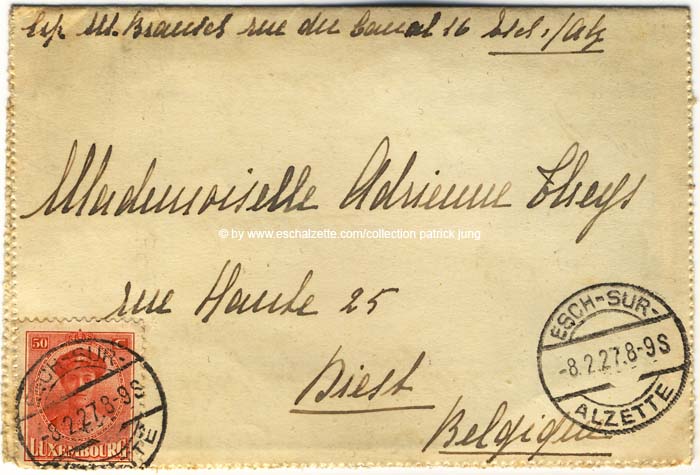 Exp M. Brausch rue du Canal 16 Esch s/Alz
Mademoiselle Adrienne Theys
© by www.eschalzette.com/collection patrick jung
rue Haute 25
Diest
Belgique
ESCH-SUR-
-8.2.27.8-9S
ALZETTE
50
LUXEMBOURG
CH-SUR-
-8.2.27.8-9S
TTE